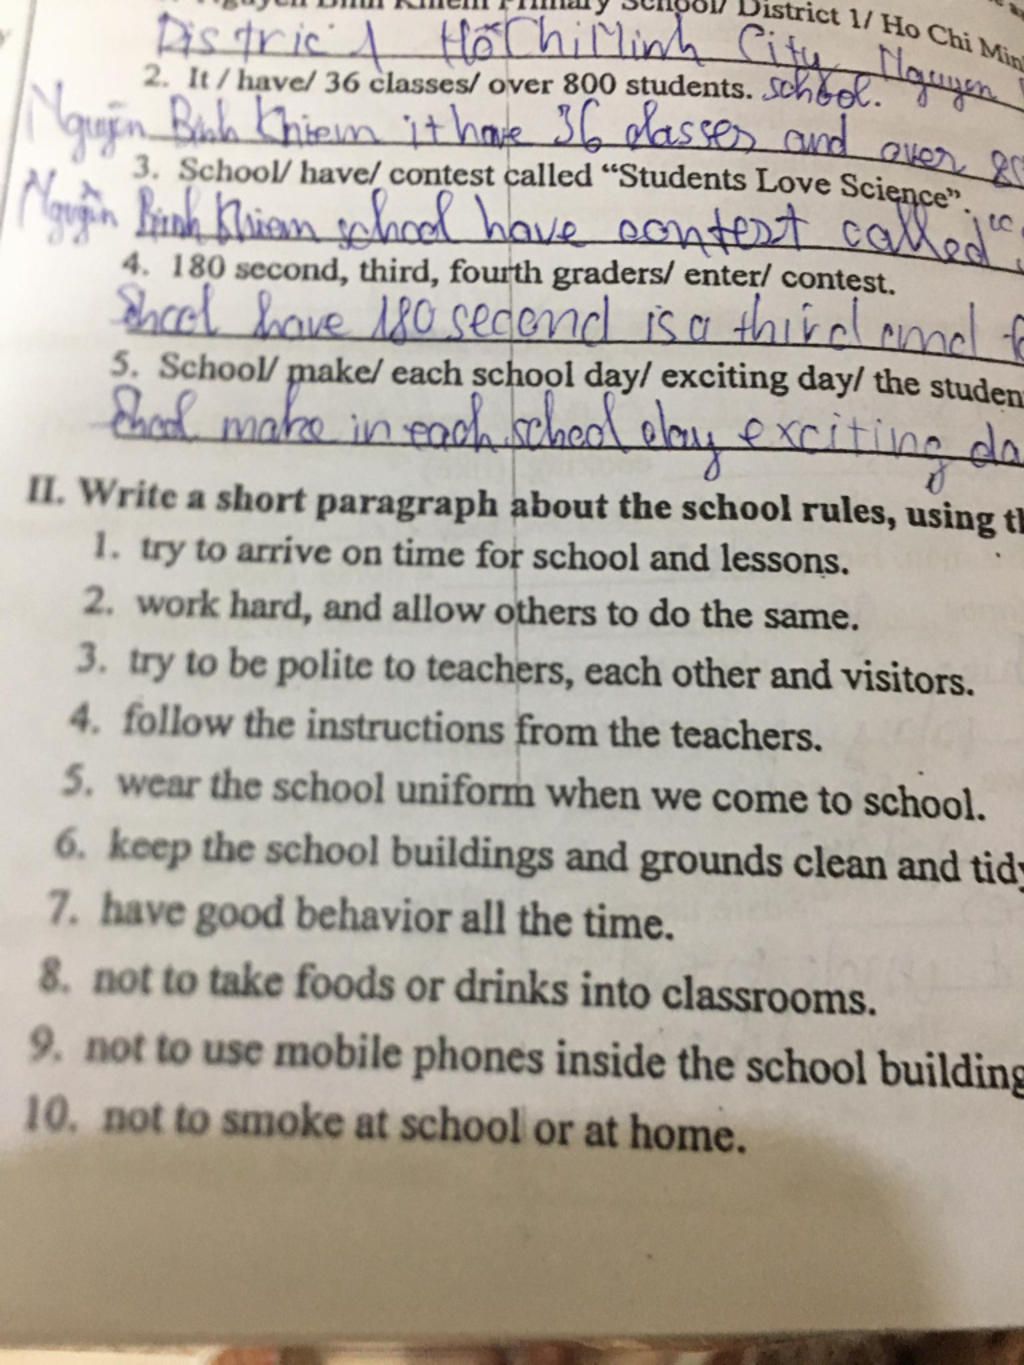 Nguyen Binh Khiem Primary School/ District 1/ Ho Chi Min
Distric 1 Hồ Chi Minh City Nguyen
2. It / have/ 36 classes/ over 800 students. school.
Nguyễn Binh Khiem it have 36 classes and over 80
3. School/ have/ contest called “Students Love Science”.
Nguyễn Binh Khiem school have contest called “
4. 180 second, third, fourth graders/ enter/ contest.
School have 180 second is a third and fo
5. School/ make/ each school day/ exciting day/ the studen
School make in each school day exciting da
II. Write a short paragraph about the school rules, using th
1. try to arrive on time for school and lessons.
2. work hard, and allow others to do the same.
3. try to be polite to teachers, each other and visitors.
4. follow the instructions from the teachers.
5. wear the school uniform when we come to school.
6. keep the school buildings and grounds clean and tidy
7. have good behavior all the time.
8. not to take foods or drinks into classrooms.
9. not to use mobile phones inside the school building
10. not to smoke at school or at home.